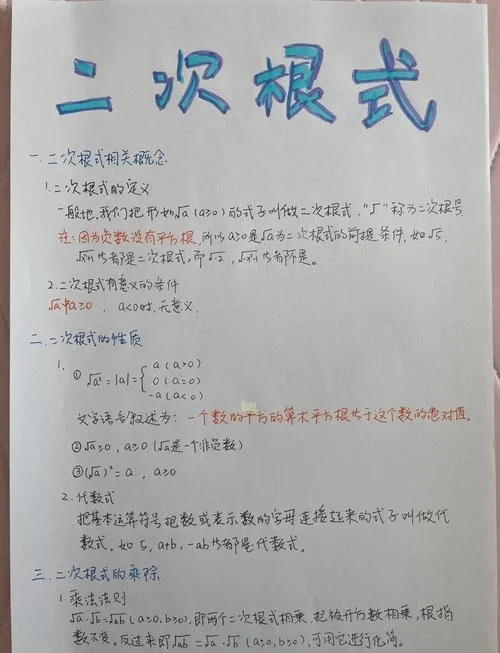 二次根式
一. 二次根式相关概念
1. 二次根式的定义
一般地,我们把形如√a (a≥0) 的式子叫做二次根式,"√" 称为二次根号.
注:因为负数没有平方根,所以a≥0是√a为二次根式的前提条件,如√5,
等都是二次根式,而√-2, 等都不是。
2. 二次根式有意义的条件
√a中a≥0 , a<0时,无意义.
二. 二次根式的性质
1. ① √a² = |a| = { a (a>0)
0 (a=0)
-a (a<0)
文字语言叙述为: 一个数的平方的算术平方根等于这个数的绝对值.
②√a≥0, a≥0 (√a是一个非负数)
③(√a)² = a, a≥0
2. 代数式
把基本运算符号把数或表示数的字母连接起来的式子叫做代
数式. 如 5, a+b, -ab等都是代数式.
三. 二次根式的乘除
1. 乘法法则
√a·√b=√ab (a≥0,b≥0), 即两个二次根式相乘,把被开方数相乘,根指
数不变。反过来即√ab =√a·√b (a≥0, b≥0), 可用它进行化简。